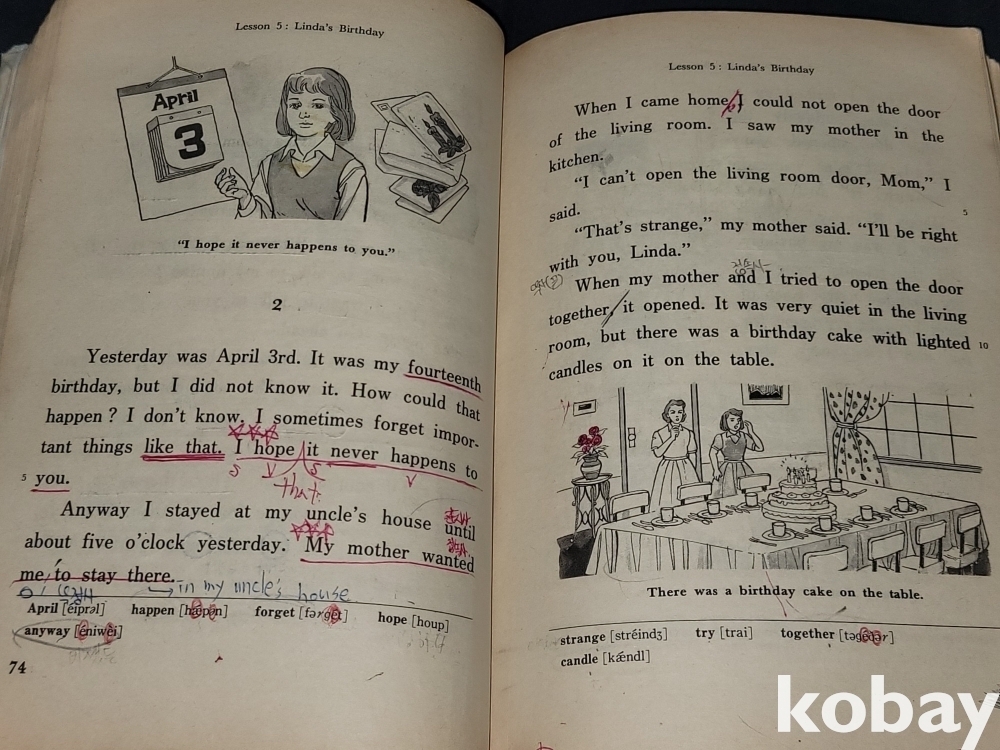 Lesson 5 : Linda's Birthday
April
3
"I hope it never happens to you."
2
Yesterday was April 3rd. It was my fourteenth
birthday, but I did not know it. How could that
happen? I don't know. I sometimes forget impor-
tant things like that. I hope it never happens to
S V S V
that
5 you.
Anyway I stayed at my uncle's house until
about five o'clock yesterday. My mother wanted
me to stay there.
in my uncle's house
April [éiprəl] happen [hǽpən] forget [fərgét] hope [houp]
anyway [éniwèi]
74
Lesson 5 : Linda's Birthday
When I came home, I could not open the door
of the living room. I saw my mother in the
kitchen.
"I can't open the living room door, Mom," I
5
said.
"That's strange," my mother said. "I'll be right
with you, Linda."
When my mother and I tried to open the door
together, it opened. It was very quiet in the living
room, but there was a birthday cake with lighted 10
candles on it on the table.
There was a birthday cake on the table.
strange [stréindʒ] try [trai] together [təgéðər]
candle [kǽndl]
kobay